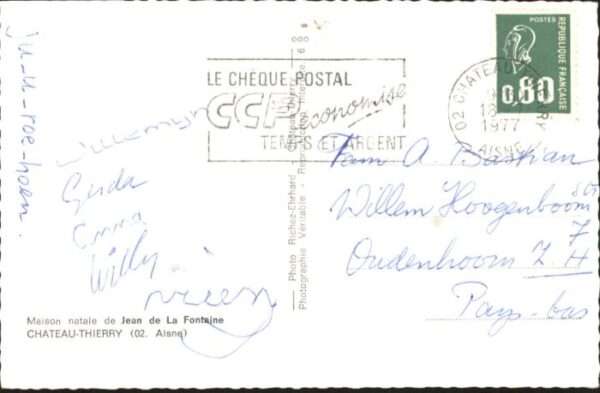 ju-u-roe-hoen.
Willemijn
Gerda
Emma
Willy
Maison natale de Jean de La Fontaine
CHATEAU-THIERRY (02. Aisne)
LE CHÈQUE POSTAL
CCP économise
TEMPS ET ARGENT
— Photo Richez-Ehrhard — Chateau-Thierry —
Photographie Véritable - Reproduction Interdite
POSTES
REPUBLIQUE FRANÇAISE
0,80
02 CHATEAU
1977
AISNE
Fam A. Bastian
Willem Hoogenboom
7
Oudenhoorn Z. H
Pays-bas